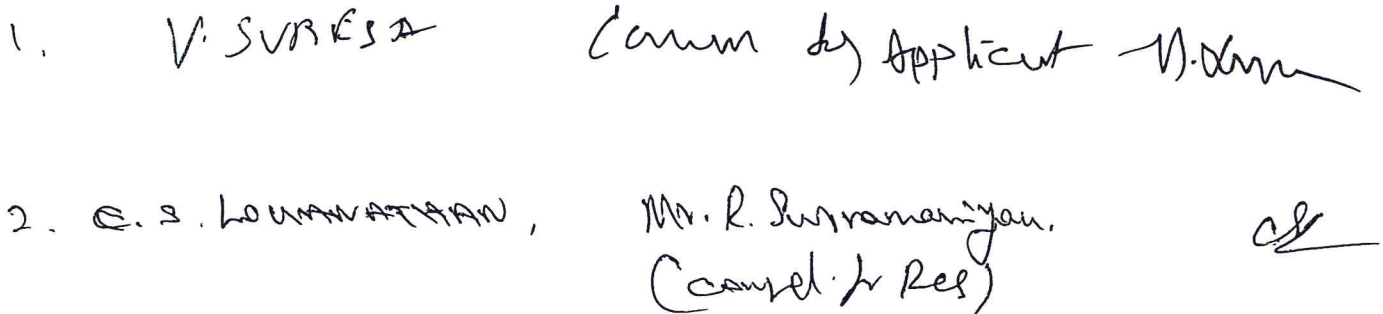 1. V. SURESH Counsel for Applicant
2. C. S. LOGANATHAN, Mr. R. Subramaniyan.
(Counsel for Res)